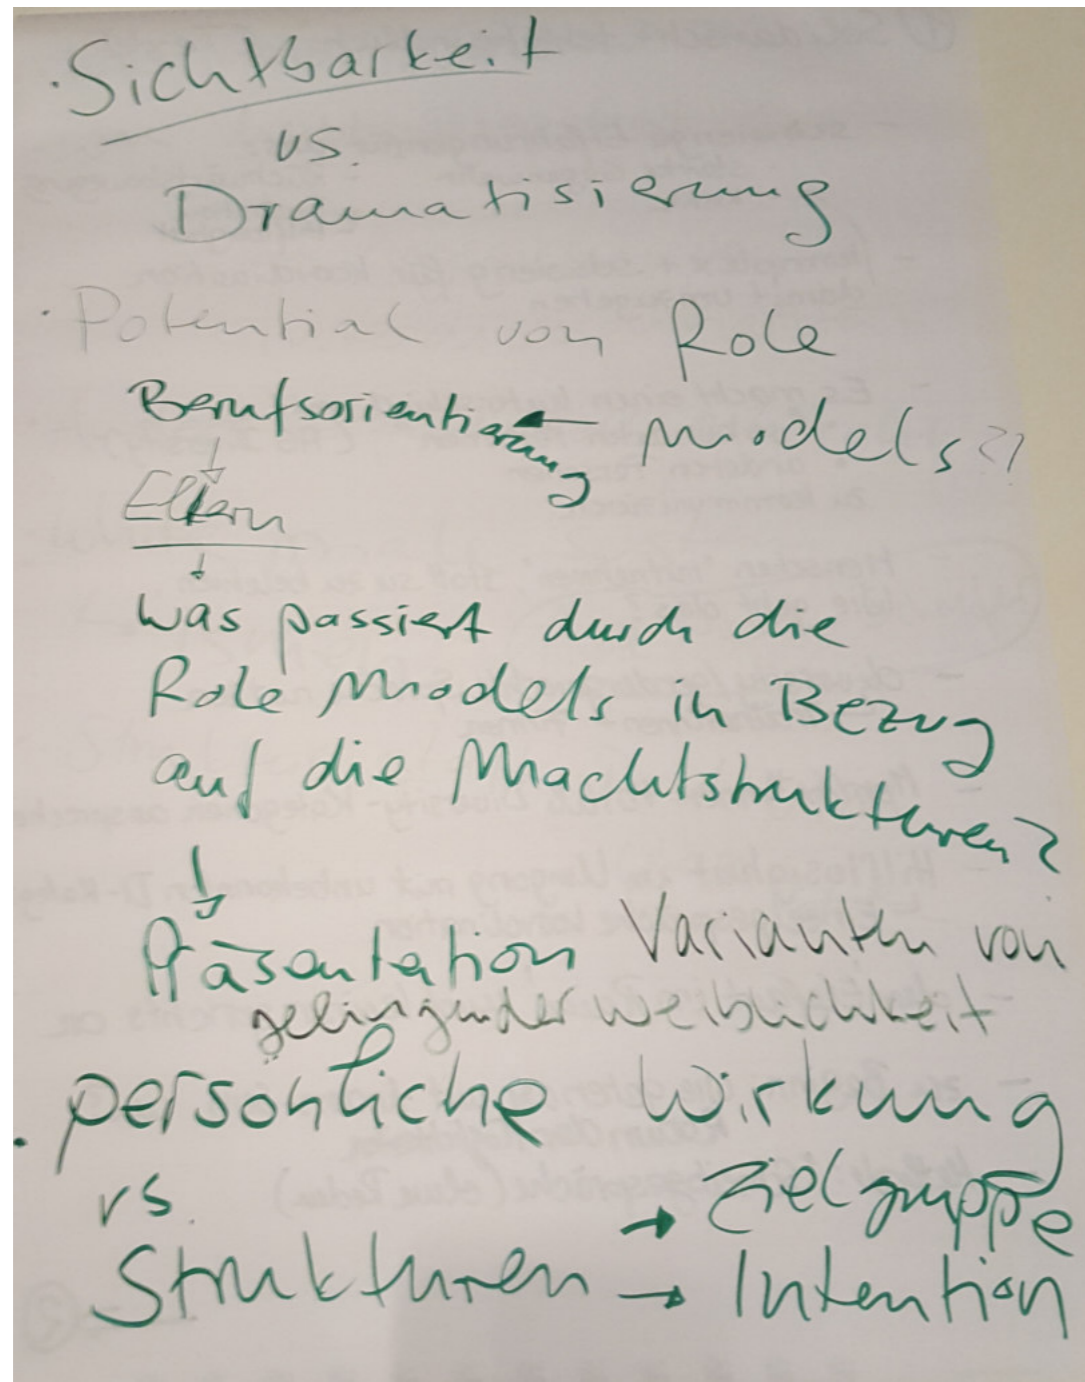 · Sichtbarkeit
vs.
Dramatisierung
· Potential von Role
Models??
Berufsorientierung ←
↓
Eltern
↓
Was passiert durch die
Role Models in Bezug
auf die Machtstrukturen?
↓
Präsentation Varianten von
gelingender Weiblichkeit
· persönliche Wirkung
vs.
→ Zielgruppe
Strukturen → Intention